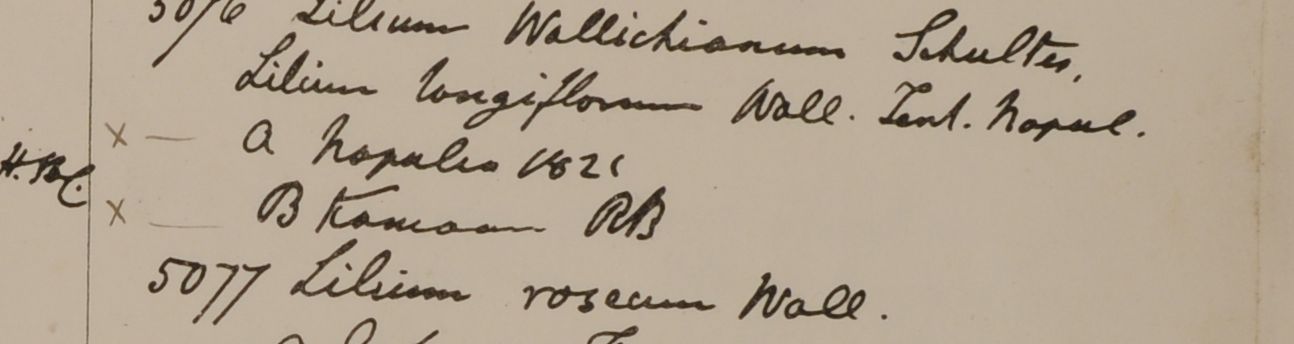 5076 Lilium Wallichianum Schultes,
Lilium longiflorum Wall. Tent. Napul.
x — A Napalia 1821
H.B.C.
x — B Kamaon RB
5077 Lilium roseum Wall.